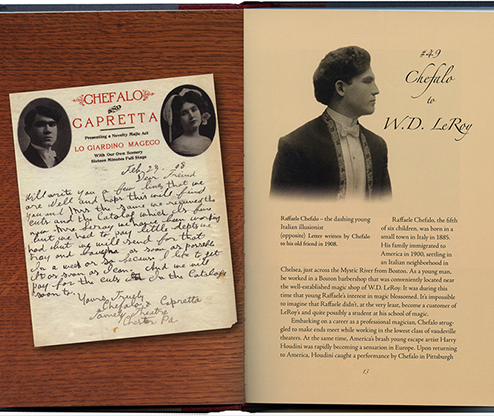 CHEFALO
AND
CAPRETTA
Presenting a Novelty Magic Act
LO GIARDINO MAGECO
With Our Own Scenery
Sixteen Minutes Full Stage
Feb 23. 08
Dear Friend
Will write you a few lines that we
are Well and hope this will find
you and Mrs the same we received the
Cuts and the Catalog which is fine
now Mrs Leroy we have been working
but we had to pay little debts we
had but we will send for that
tray and vanisher as soon as possable
in a week or so because I like to get
it as soon as I can And we will
pay for the cuts in the Catalog
soon to.
Yours Truly
Chefalo & Capretta
Family Theatre
Chester Pa
#49
Chefalo
to
W.D. LeRoy
Raffaele Chefalo – the dashing young
Italian illusionist
(opposite) Letter written by Chefalo
to his old friend in 1908.
Raffaele Chefalo, the fifth
of six children, was born in a
small town in Italy in 1885.
His family immigrated to
America in 1900, settling in
an Italian neighborhood in
Chelsea, just across the Mystic River from Boston. As a young man,
he worked in a Boston barbershop that was conveniently located near
the well-established magic shop of W.D. LeRoy. It was during this
time that young Raffaele's interest in magic blossomed. It's impossible
to imagine that Raffaele didn't, at the very least, become a customer of
LeRoy's and quite possibly a student at his school of magic.
Embarking on a career as a professional magician, Chefalo strug-
gled to make ends meet while working in the lowest class of vaudeville
theaters. At the same time, America's brash young escape artist Harry
Houdini was rapidly becoming a sensation in Europe. Upon returning
to America, Houdini caught a performance by Chefalo in Pittsburgh
13